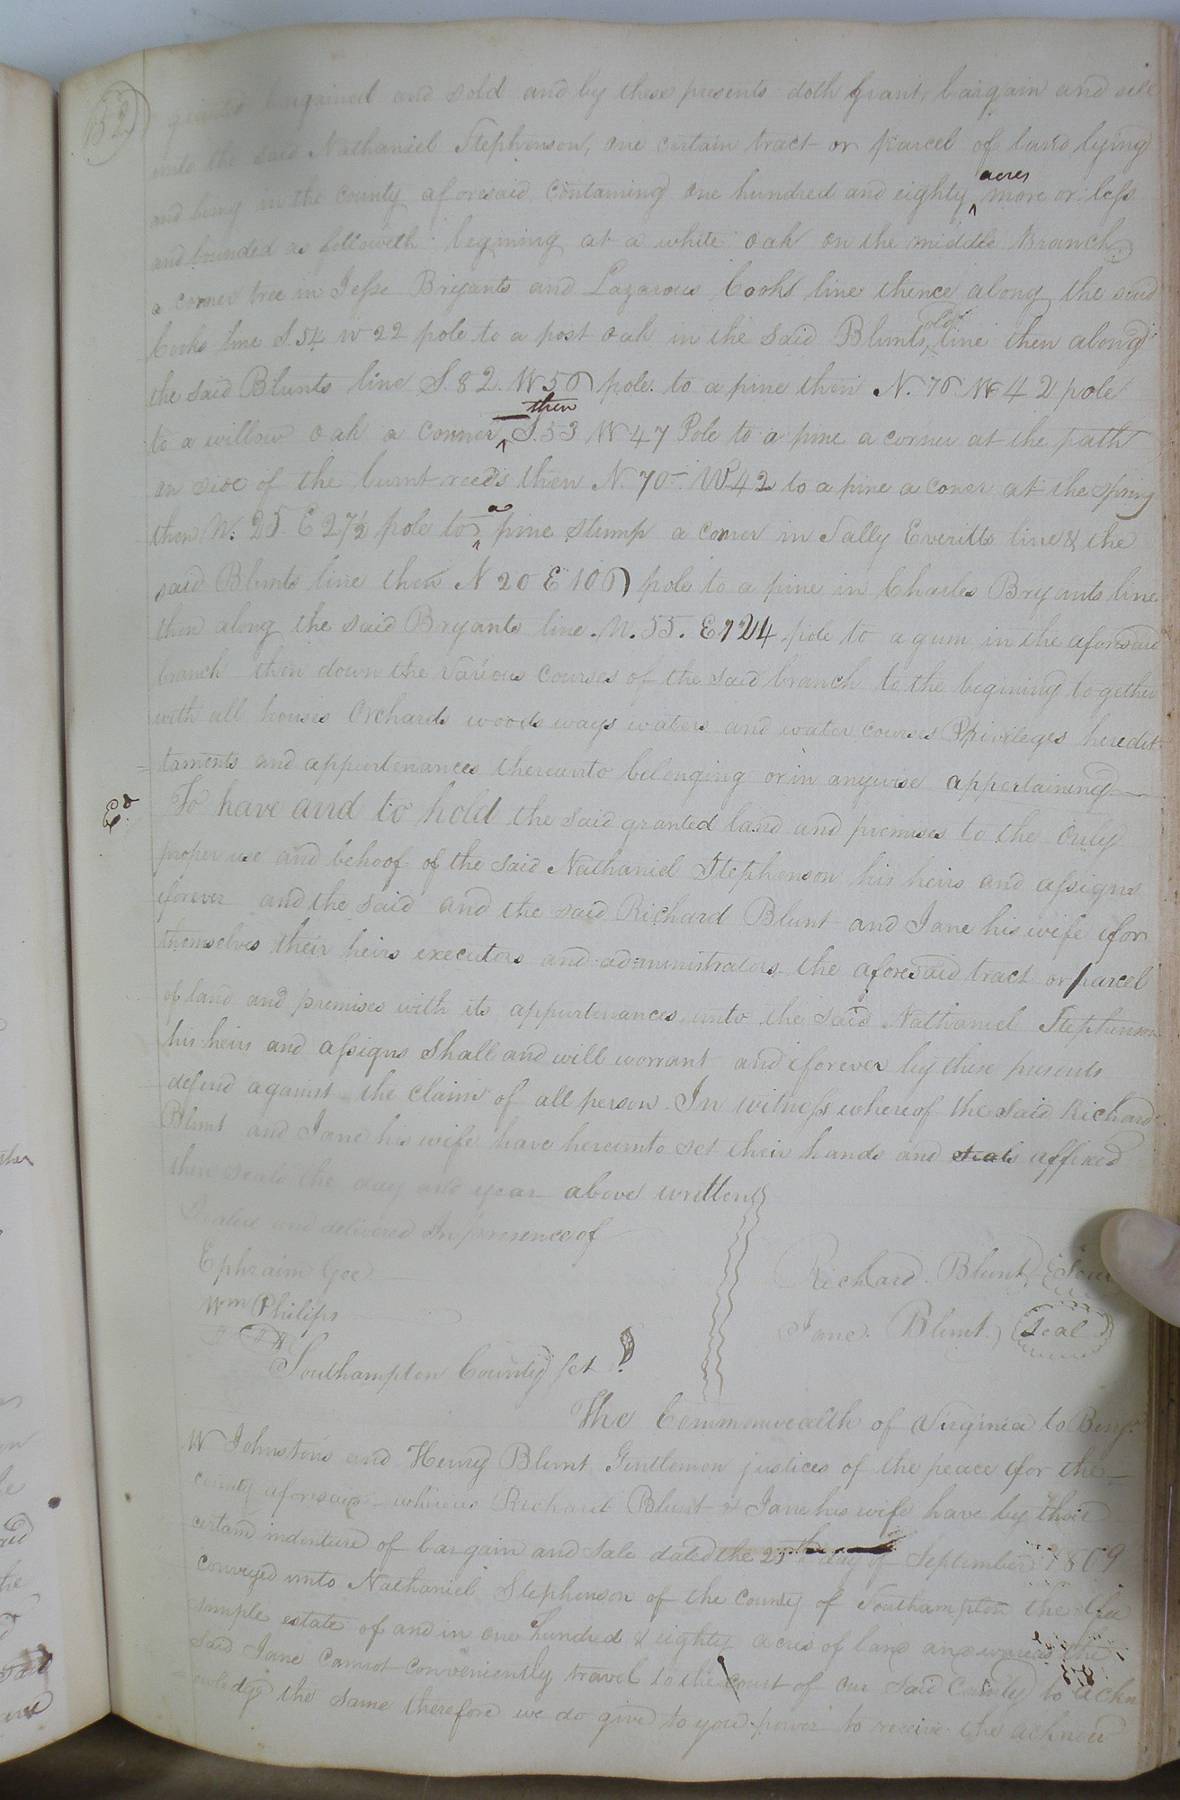 granted bargained and sold and by these presents doth grant, bargain and sell
unto the said Nathaniel Stephenson, one certain tract or parcel of land lying
and being in the county aforesaid containing one hundred and eighty ^ acres more or less
and bounded as followeth begining at a white oak on the middle Branch
a corner tree in Jesse Bryants and Lazarous Cooks line thence along the said
Cooks line S. 54 W 22 pole to a post oak in the said Blunts old line then along
the said Blunts line S. 82. W 56 pole. to a pine then N. 76 W 42 pole
to a willow oak a conner ^ then S. 53 W 47 Pole to a pine a corner at the path
on side of the burnt reeds then N. 70 W 42 to a pine a coner at the spring
then N. 25. E 27½ pole to ^ a pine stump a corner in Sally Everitts line & the
said Blunts line then N 20 E 106 pole to a pine in Charles Bryants line
then along the said Bryants line N. 55. E 124 pole to a gum in the aforesaid
branch then down the various courses of the said branch to the begining together
with all houses Orchards woods ways waters and water courses Privileges heredit
=taments and appurtenances thereunto belonging or in anywise appertaining
Ed To have and to hold the said granted land and premises to the only
proper use and behoof of the said Nathaniel Stephenson his heirs and assigns
forever and the said and the said Richard Blunt and Jane his wife for
themselves their heirs executors and administrators the aforesaid tract or parcel
of land and premises with its appurtenances unto the said Nathaniel Stephenson
his heirs and assigns shall and will worrant and forever by these presents
defend against the claim of all person. In witness whereof the said Richard
Blunt and Jane his wife have hereunto set their hands and seals affixed
there seals the day and year above written
Sealed and delivered In presence of
Ephraim Gee
Richard. Blunt, Seal
Wm Philips
Jane. Blunt. Seal
Southampton County Sct
The Commonwealth of Virginia to Benjn
W Johnston and Henry Blunt Gentlemen justices of the peace for the
county aforesaid whereas Richard Blunt & Jane his wife have by their
certain indenture of bargain and sale dated the 25th day of September 1809
conveyed unto Nathaniel Stephenson of the county of Southampton the fee
simple estate of and in one hundred & eighty acres of land and whereas the
said Jane cannot conveniently travel to the court of our said County to ackn
owledge the same therefore we do give to you power to receive the acknow